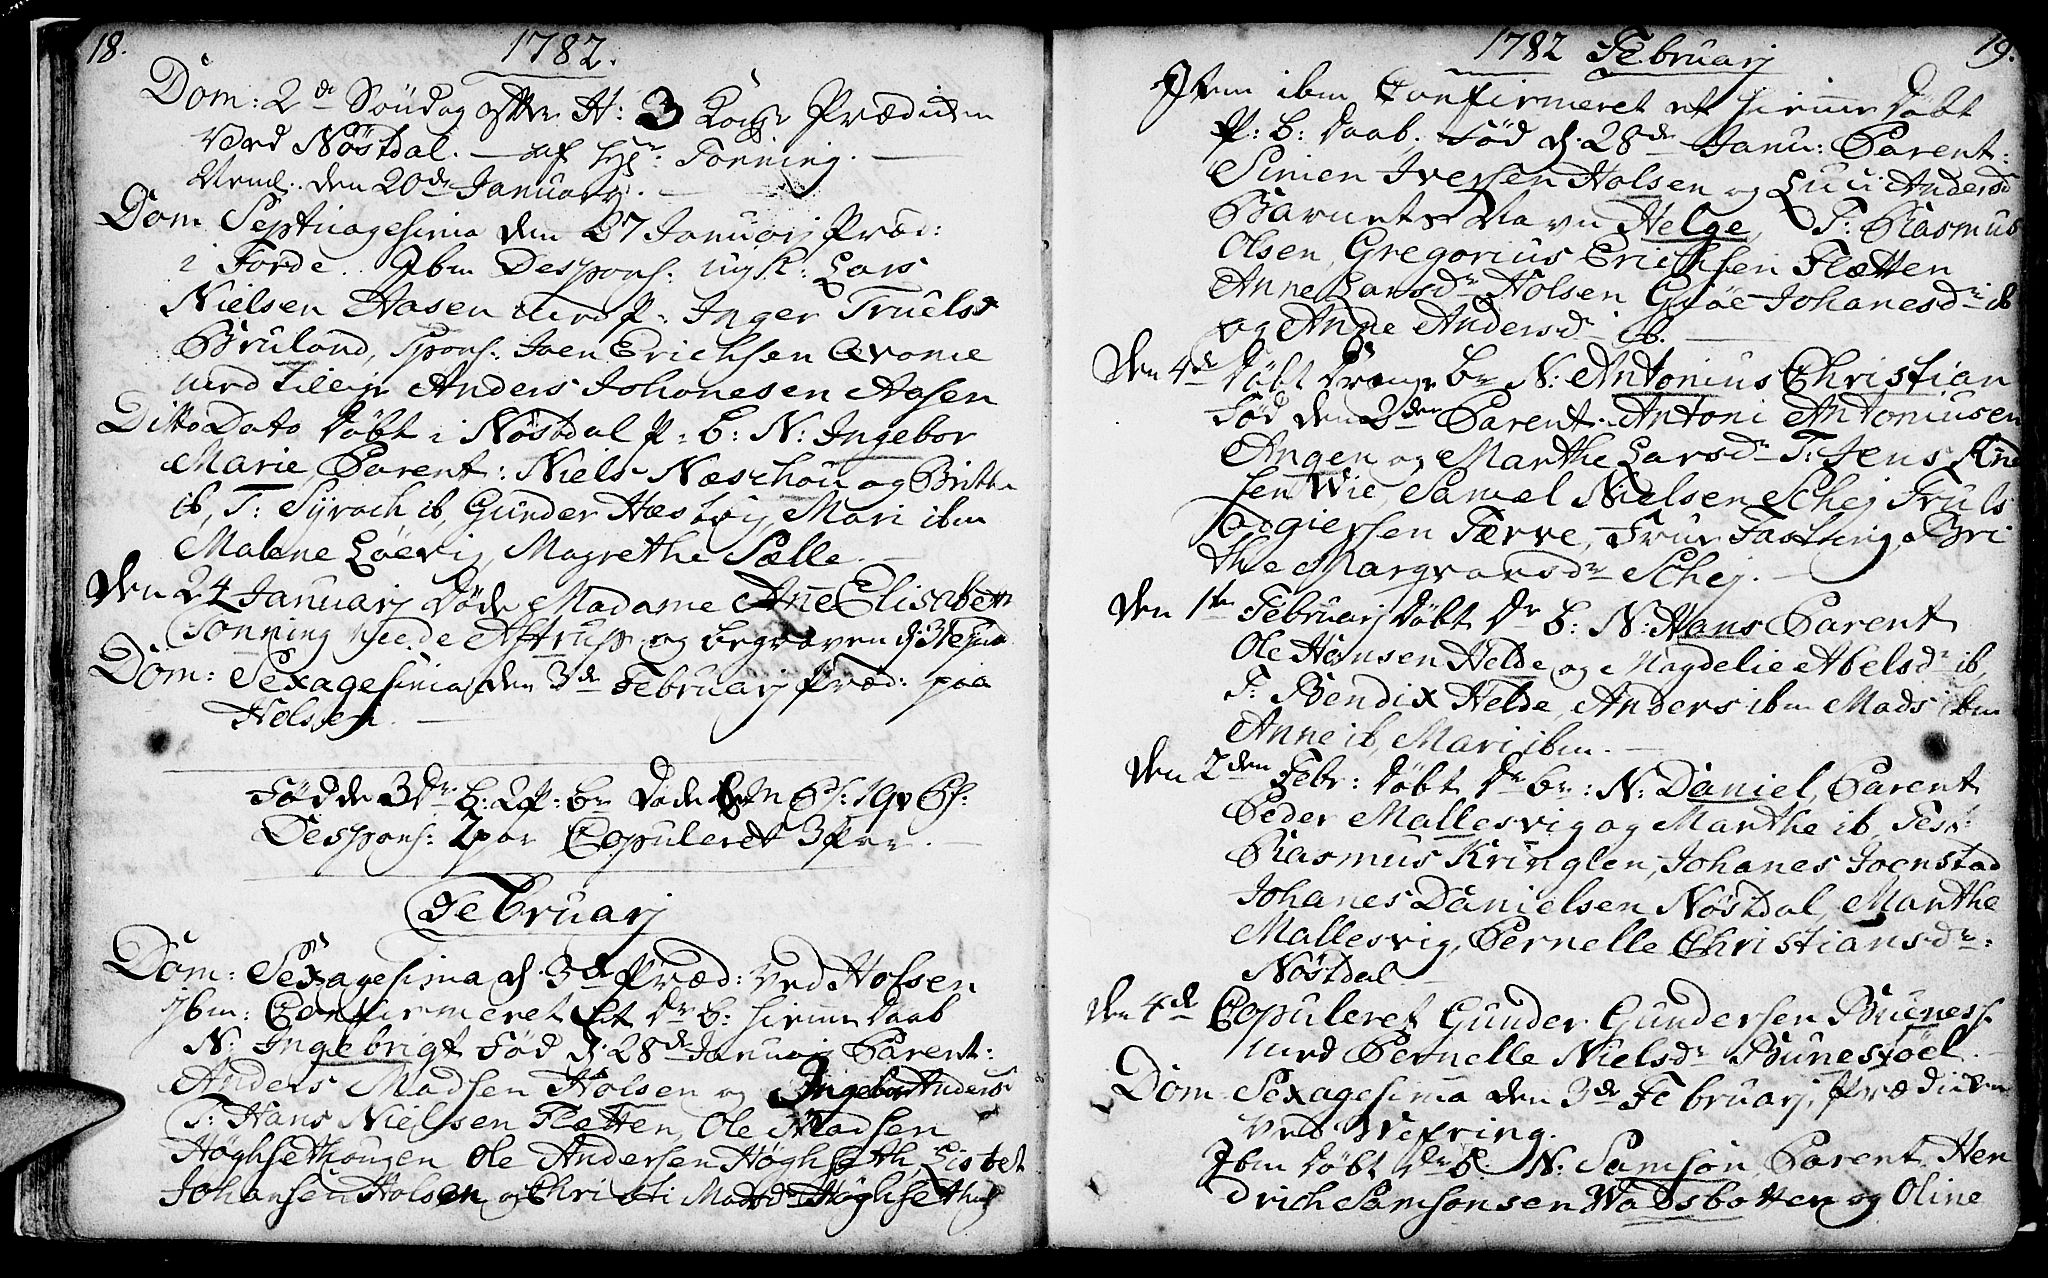 18.
1782.
Dom: 2de Söndag efter H: 3 Konger Prædiken
Ved Nöstdal. — af Hr: Tonning. —
Neml. den 20de Januarij. —
Dom Septuagesima den 27 Januarij Præd:
i Förde. Ibm Despons: ungK: Lars
Nielsen Aasen med P: Inger Truelsd
Bruland, Spons: Joen Erichsen Qvame
med Anders Johanesen Aasen
Ditto Dato döbt i Nöstdal P: b: N: Ingebor
Marie, Parent: Niels Næschou og Britte
ib, T: Syrach ib, Gunder Hæstvig, Mari ibm
Malene Löevig, Magrethe Sælle. —
Den 24 Januarij döde Madame Anne Elisabeth
Tonning næe de Astrup og begraven d: 31
Dom: Sexagesima, den 3de Februarij Præd: paa
Holssen. —
Födde 3 Dr: b: 2 P: br Döde M P: Qv P:
Despons: 2 par Copuleret 3 Par. —
Februarj
Dom: Sexagesima d. 3de Præd: ved Holsen
Ibm: Confirmeret et Dr b: hiemme Daab
N: Ingebrigt Föd d: 28de Januarij Parent:
Anders Madsen Holsen og Ingebor Andersd
T: Hans Nielsen Fletten, Ole Madsen
Höghsethougen Ole Andersen Höghseth, Lisbet
Johansen Holsen og Christi Madsdr Höghsethug
1782 Februarj
19.
Item ibm Confirmeret et hiemme döbt
P: b: daab. Föd d. 28de Janu: Parent:
Simen Iversen Holsen og Luci Andersd
Barnets Navn Helge, T: Rasmus
Olsen, Gregorius Erichsen Flætten
Anne Larsdr Holsen Giöe Johanesdr ib
og Anne Andersd ib. —
Den 4de döbt Drenge br N: Antonius Christian
Föd den 2den Parent. Antoni Antoniusen
Angen og Marthe Larsdr T: Jens Knud
sen Wie, Samuel Nielsen Schej Truls
Torgiersen Færve, Frue Fasting, Bri
the Margvarsdr Schej. —
Den 1ten Februarij Döbt Dr b: N: Hans Parent
Ole Hansen Helde og Magdelie Abelsdr ib,
T: Bendix Helde, Anders ibm Mads ibm
Anne ib, Mari ibm. —
Den 2den Febr: döbt Dr br: N: Daniel, Parent
Peder Mallesvig og Marthe ib, Test:
Rasmus Kringlen, Johanes Joenstad
Johanes Danielsen Nöstdal, Marthe
Mallesvig, Pernelle Christiansdr:
Nöstdal —
Den 4de Copuleret Gunder Gundersen Buenes
med Pernelle Nielsdr Bunestöel. —
Dom Sexagesima den 3de Februarij, Prædiken
ved Wefring.
Ibm döbt Dr b N: Samson, Parent Hen
drich Samsonsen Wadsbotten og Oline